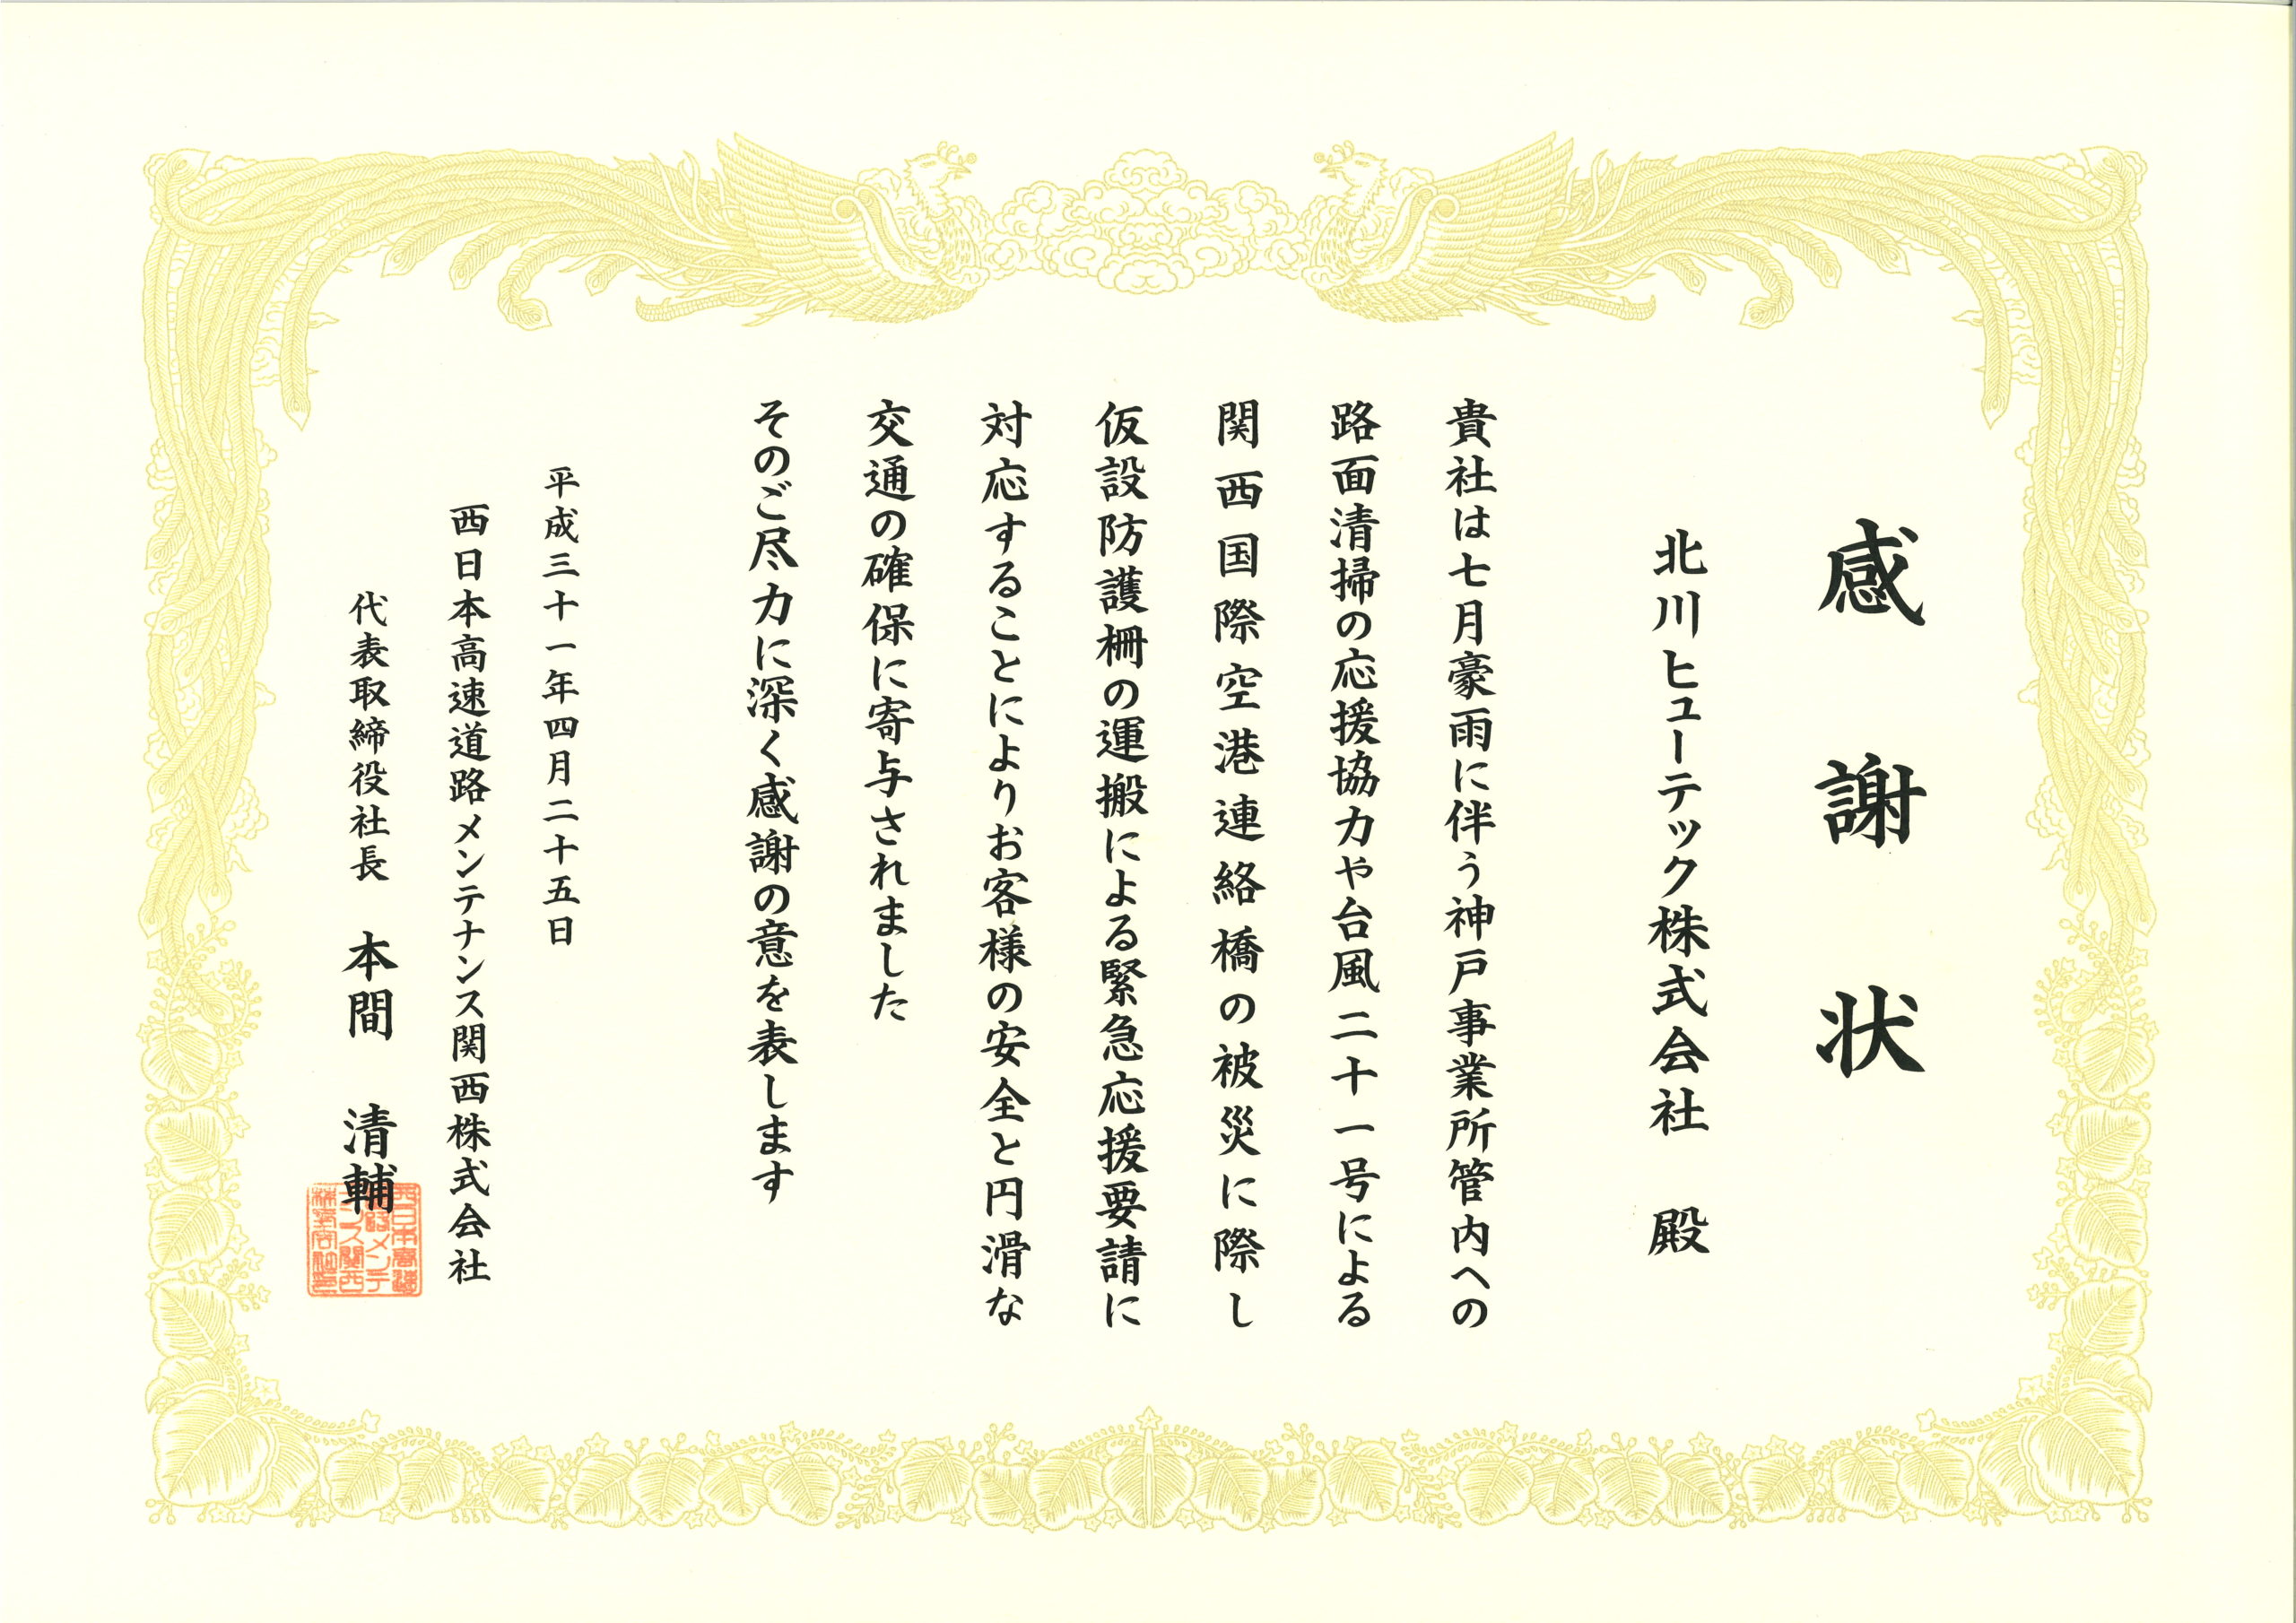 感謝状
北川ヒューテック株式会社　殿
貴社は七月豪雨に伴う神戸事業所管内への
路面清掃の応援協力や台風二十一号による
関西国際空港連絡橋の被災に際し
仮設防護柵の運搬による緊急応援要請に
対応することによりお客様の安全と円滑な
交通の確保に寄与されました
そのご尽力に深く感謝の意を表します
平成三十一年四月二十五日
西日本高速道路メンテナンス関西株式会社
代表取締役社長　本間　清輔